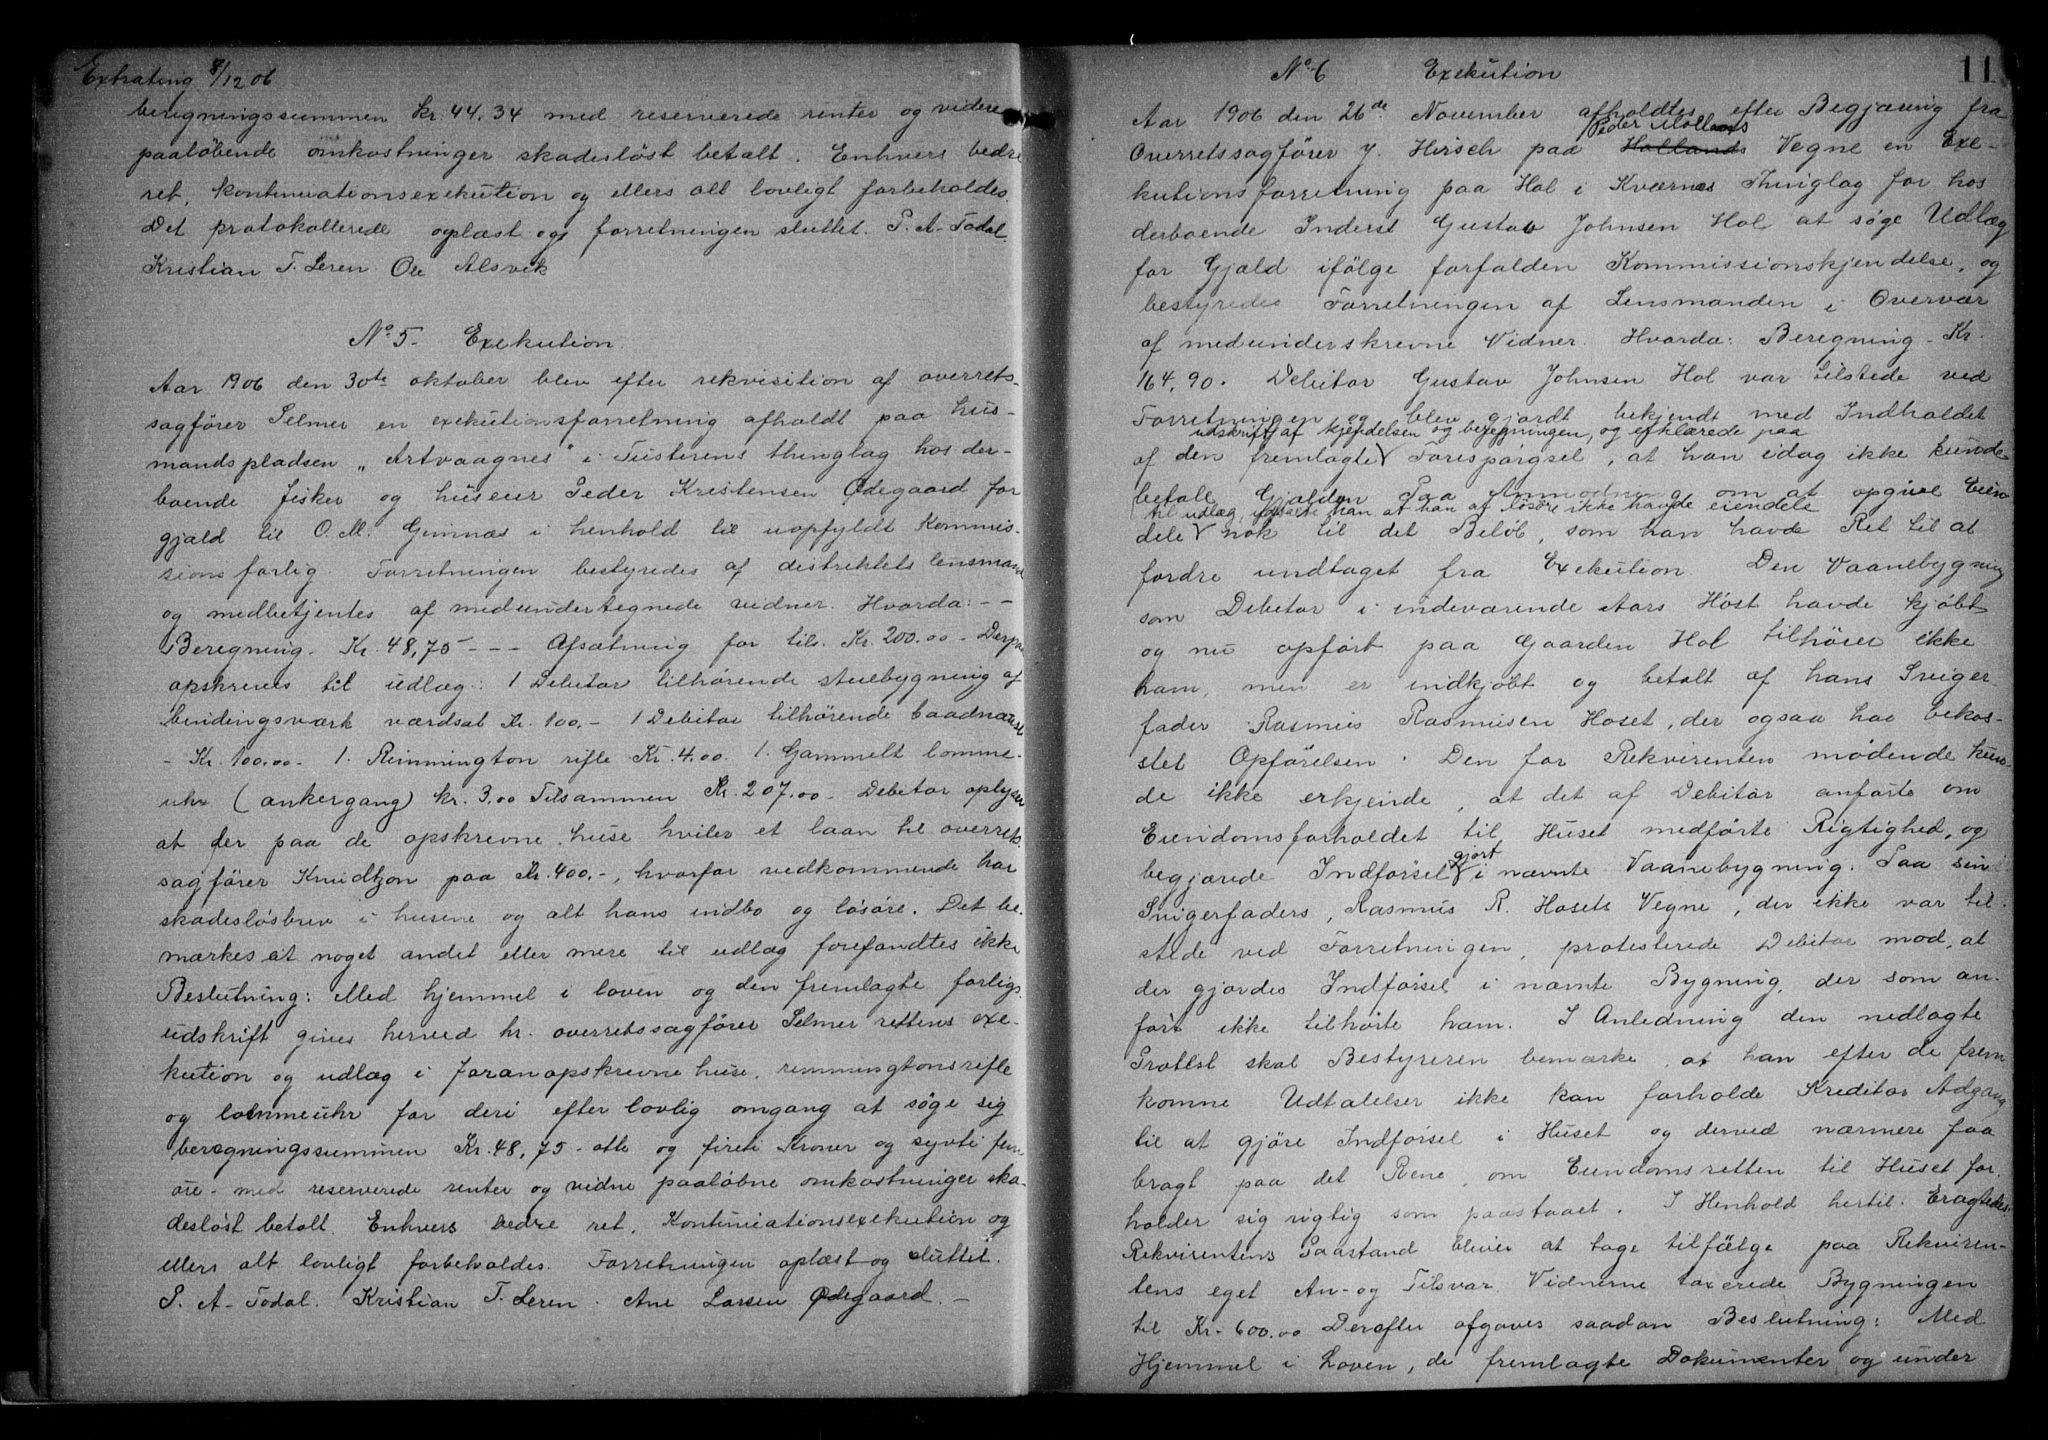 Extrating 8/12 06
beregningssummen kr. 44.34 med reserverede renter og videre
paaløbende omkostninger skadesløst betalt. Enhvers bedre
ret, kontinuationsexekution og ellers alt lovligt forbeholdes.
Det protokollerede oplæst og forretningen sluttet. P. A. Todal.
Kristian T. Leren Ole Alsvik
No 5. Exekution.
Aar 1906 den 30te oktober blev efter rekvisition af overrets-
sagfører Selmer en exekutionsforretning afholdt paa hus-
mandspladsen „Artvaagnes" i Tusterens thinglag hos der-
boende fisker og huseier Peder Kristensen Ødegaard for
gjæld til O. M. Gimnæs i henhold til uopfyldt Kommis-
sionsforlig. Forretningen bestyredes af distriktets lensmand
og medbetjentes af medundertegnede vidner. Hvorda: - -
Beregning. Kr. 48,75 - - - Afsætning for tils. Kr. 200.00 - Derpaa
opskreves til udlæg: 1 Debitor tilhørende stuebygning af
bindingsværk værdsat Kr. 100,- 1 Debitor tilhørende baadnøst
- Kr. 100.00 - 1. Rimmington rifle Kr. 4.00. 1. Gammelt lomme-
uhr (ankergang) kr. 3.00 Tilsammen Kr. 207.00 - Debitor oplyser
at der paa de opskrevne huse hviler et laan til overrets-
sagfører Knudtzon paa Kr. 400,-, hvorfor vedkommende har
skadesløsbrev i husene og alt hans indbo og løsøre. Det be-
mærkes at noget andet eller mere til udlæg forefandtes ikke
Beslutning: Med hjemmel i loven og den fremlagte forligs-
udskrift gives herved hr. overretssagfører Selmer rettens exe-
kution og udlæg i foranopskrevne huse, remmingtonsrifle
og lommeuhr for deri efter lovlig omgang at søge sig
beregningssummen Kr. 48,75 - otte og firti Kroner og sytti fem
øre - med reserverede renter og vidne paaløbne omkostninger ska-
desløst betalt. Enhvers bedre ret, Kontinuationsexekution og
ellers alt lovligt forbeholdes. Forretningen oplæst og sluttet.
P. A. Todal. Kristian T. Leren. Ane Larsen Ødegaard. -
No 6 Exekution 11
Aar 1906 den 26de November afholdtes efter Begjæring fra
Peder Mollands
Overretssagfører J. Hirsch paa Hollands Vegne en Exe-
kutionsforretning paa Hol i Kværnes Thinglag for hos
derboende Inderst Gustav Johnsen Hol at søge Udlæg
for Gjæld ifølge forfalden Kommissionskjendelse, og
bestyredes Forretningen af Lensmanden i Overvær
af medunderskrevne Vidner. Hvorda: Beregning - Kr.
164,90. Debitor Gustav Johnsen Hol var tilstede ved
Forretningen og blev gjordt bekjendt med Indholdet
udskrift af kjendelsen og beregningen, og erklærede paa
af den fremlagte Forespørgsel, at han idag ikke kunde
betale Gjælden Paa Anmodning om at opgive Eien-
til udlæg, han at han af løsøre ikke havde eiendele
dele nok til det Beløb, som han havde Ret til at
fordre undtaget fra Exekution. Den Vaanebygning
som Debitor i indeværende Aars Høst havde kjøbt
og nu opført paa Gaarden Hol tilhører ikke
ham, men er indkjøbt og betalt af hans Sviger-
fader Rasmus Rasmusen Hoset, der ogsaa har bekos-
stet Opførelsen. Den for Rekvirenten mødende kun-
de ikke erkjende, at det af Debitor anførte om
Eiendomsforholdet til Huset medførte Rigtighed, og
gjort
begjærede Indførsel i nævnte Vaanebygning. Paa sin
Svigerfaders, Rasmus R. Hosets Vegne, der ikke var til-
stede ved Forretningen, protesterede Debitor mod, at
der gjordes Indførsel i nævnte Bygning, der som an-
ført ikke tilhørte ham. I Anledning den nedlagte
Protest skal Bestyreren bemærke, at han efter de frem
komne Udtalelser ikke kan forholde Kreditor Adgang
til at gjøre Indførsel i Huset og derved nærmere faa
bragt paa det Rene, om Eiendomsretten til Huset for-
holder sig rigtig som paastaaet. I Henhold hertil: Eragtedes
Rekvirentens Paastand bliver at tage tilfølge paa Rekviren-
tens eget An- og Tilsvar. Vidnerne taxerede Bygningen
til Kr. 600.00 Derefter afgaves saadan Beslutning: Med
Hjemmel i Loven, de fremlagte Dokumenter og under